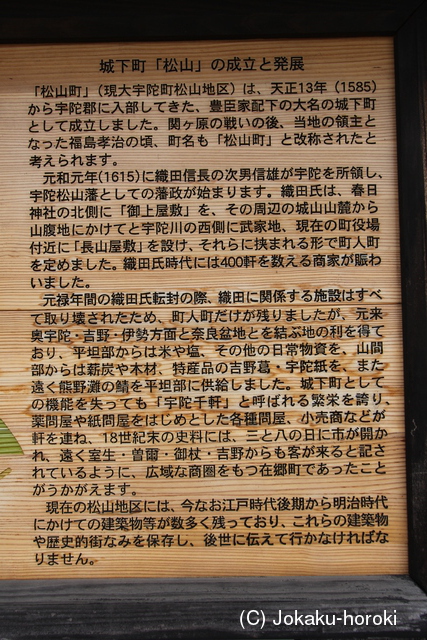 城下町「松山」の成立と発展
「松山町」（現大宇陀町松山地区）は、天正13年（1585）
から宇陀郡に入部してきた、豊臣家配下の大名の城下町
として成立しました。関ヶ原の戦いの後、当地の領主と
なった福島孝治の頃、町名も「松山町」と改称されたと
考えられます。
元和元年(1615)に織田信長の次男信雄が宇陀を所領し、
宇陀松山藩としての藩政が始まります。織田氏は、春日
神社の北側に「御上屋敷」を、その周辺の城山山麓から
山腹地にかけてと宇陀川の西側に武家地、現在の町役場
付近に「長山屋敷」を設け、それらに挟まれる形で町人町
を定めました。織田氏時代には400軒を数える商家が賑わ
いました。
元禄年間の織田氏転封の際、織田に関係する施設はすべ
て取り壊されたため、町人町だけが残りましたが、元来
奥宇陀・吉野・伊勢方面と奈良盆地とを結ぶ地の利を得て
おり、平坦部からは米や塩、その他の日常物資を、山間
部からは薪炭や木材、特産品の吉野葛・宇陀紙を、また
遠く熊野灘の鯖を平坦部に供給しました。城下町として
の機能を失っても「宇陀千軒」と呼ばれる繁栄を誇り、
薬問屋や紙問屋をはじめとした各種問屋、小売商などが
軒を連ね、18世紀末の史料には、三と八の日に市が開か
れ、遠く室生・曽爾・御杖・吉野からも客が来ると記さ
れているように、広域な商圏をもつ在郷町であったこと
がうかがえます。
現在の松山地区には、今なお江戸時代後期から明治時代
にかけての建築物等が数多く残っており、これらの建築物
や歴史的街なみを保存し、後世に伝えて行かなければな
りません。
(C) Jokaku-horoki